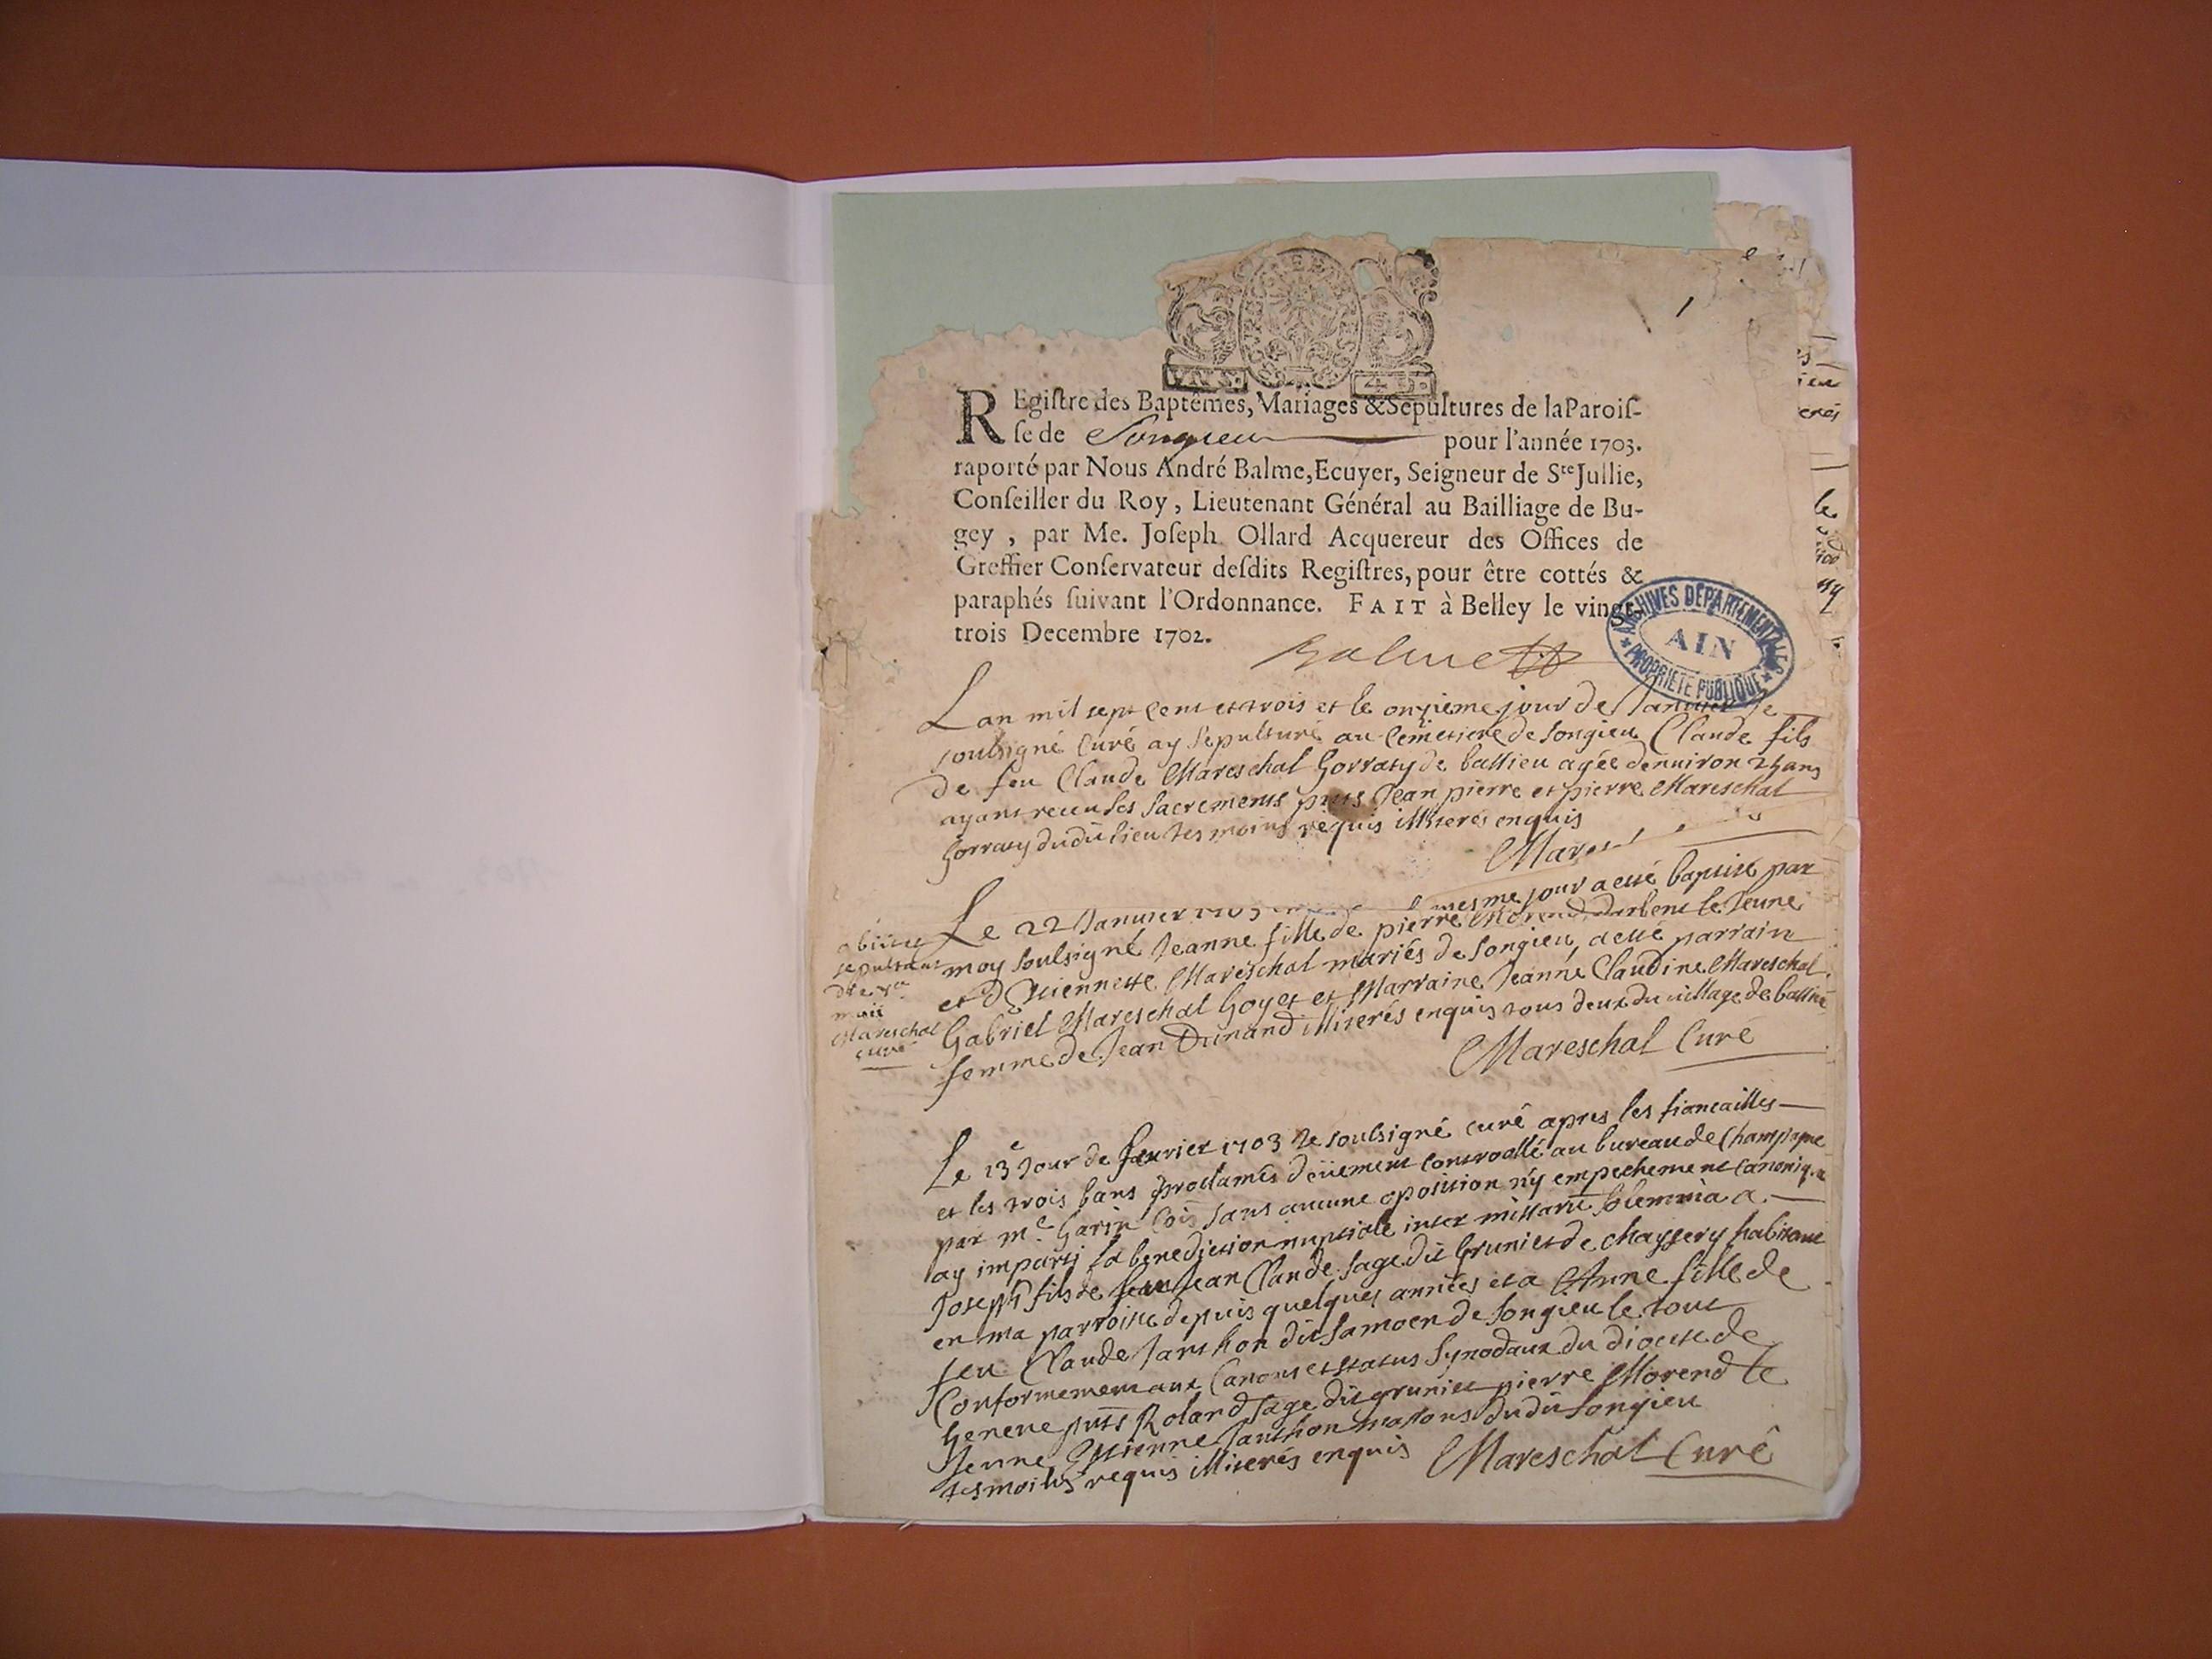 1
REgiſtre des Baptêmes, Mariages & Sepultures de la Paroiſ-
ſe de Songieu pour l'année 1703.
raporté par Nous André Balme, Ecuyer, Seigneur de Ste Jullie,
Conſeiller du Roy, Lieutenant Général au Bailliage de Bu-
gey, par Me. Joſeph Ollard Acquereur des Offices de
Greffier Conſervateur deſdits Regiſtres, pour être cottés &
paraphés ſuivant l'Ordonnance. FAIT à Belley le vingt-
trois Decembre 1702.
Balme
ARCHIVES DÉPARTEMENTALES
AIN
PROPRIÉTÉ PUBLIQUE
Lan mil sept cent et trois et le onzieme jour de Janvier Je
soubsigné Curé ay sepulturé au Cemetiere de Songieu Claude fils
de feu Claude Mareschal Gorraty de bassieu agée denuiron ans
ayant receu ses sacrements pnts Jean pierre et pierre Mareschal
Gorraty dudit lieu tesmoins requis illiterés enquis
Le 22 Janvier 1703 mesme jour a esté baptisé par
moy soubsigné Jeanne fille de pierre Morend le Jeune
et d Etiennette Mareschal mariés de Songieu, a esté parrain
Gabriel Mareschal Goyet et Marraine Jeanne Claudine Mareschal
femme de Jean Dunand illiterés enquis tous deux du village de bassieu
Mareschal Curé
obiit
Mareschal
curé
Le 13e Jour de feurier 1703 Je soubsigné curé apres les fiancailles
et les trois bans proclamés düement controollé au bureau de Champagne
par Me. Garin sans aucune oposition ny empechement canoniq.
ay imparti la benediction nuptiale inter missaru solemnia a
Joseph fils de feu Jean Claude sage dit Gruniet de chayzery habitant
en ma parroisse depuis quelques années et a Anne fille de
feu Claude Janthon dit Samoen de Songieu le tout
Conformement aux Canons et status Synodaux du diocese de
Geneue pnts Roland Sage dit gruniet pierre Morend le
Jeune Etienne Janthon massons dudit Songieu
tesmoins requis illiterés enquis Mareschal Curé